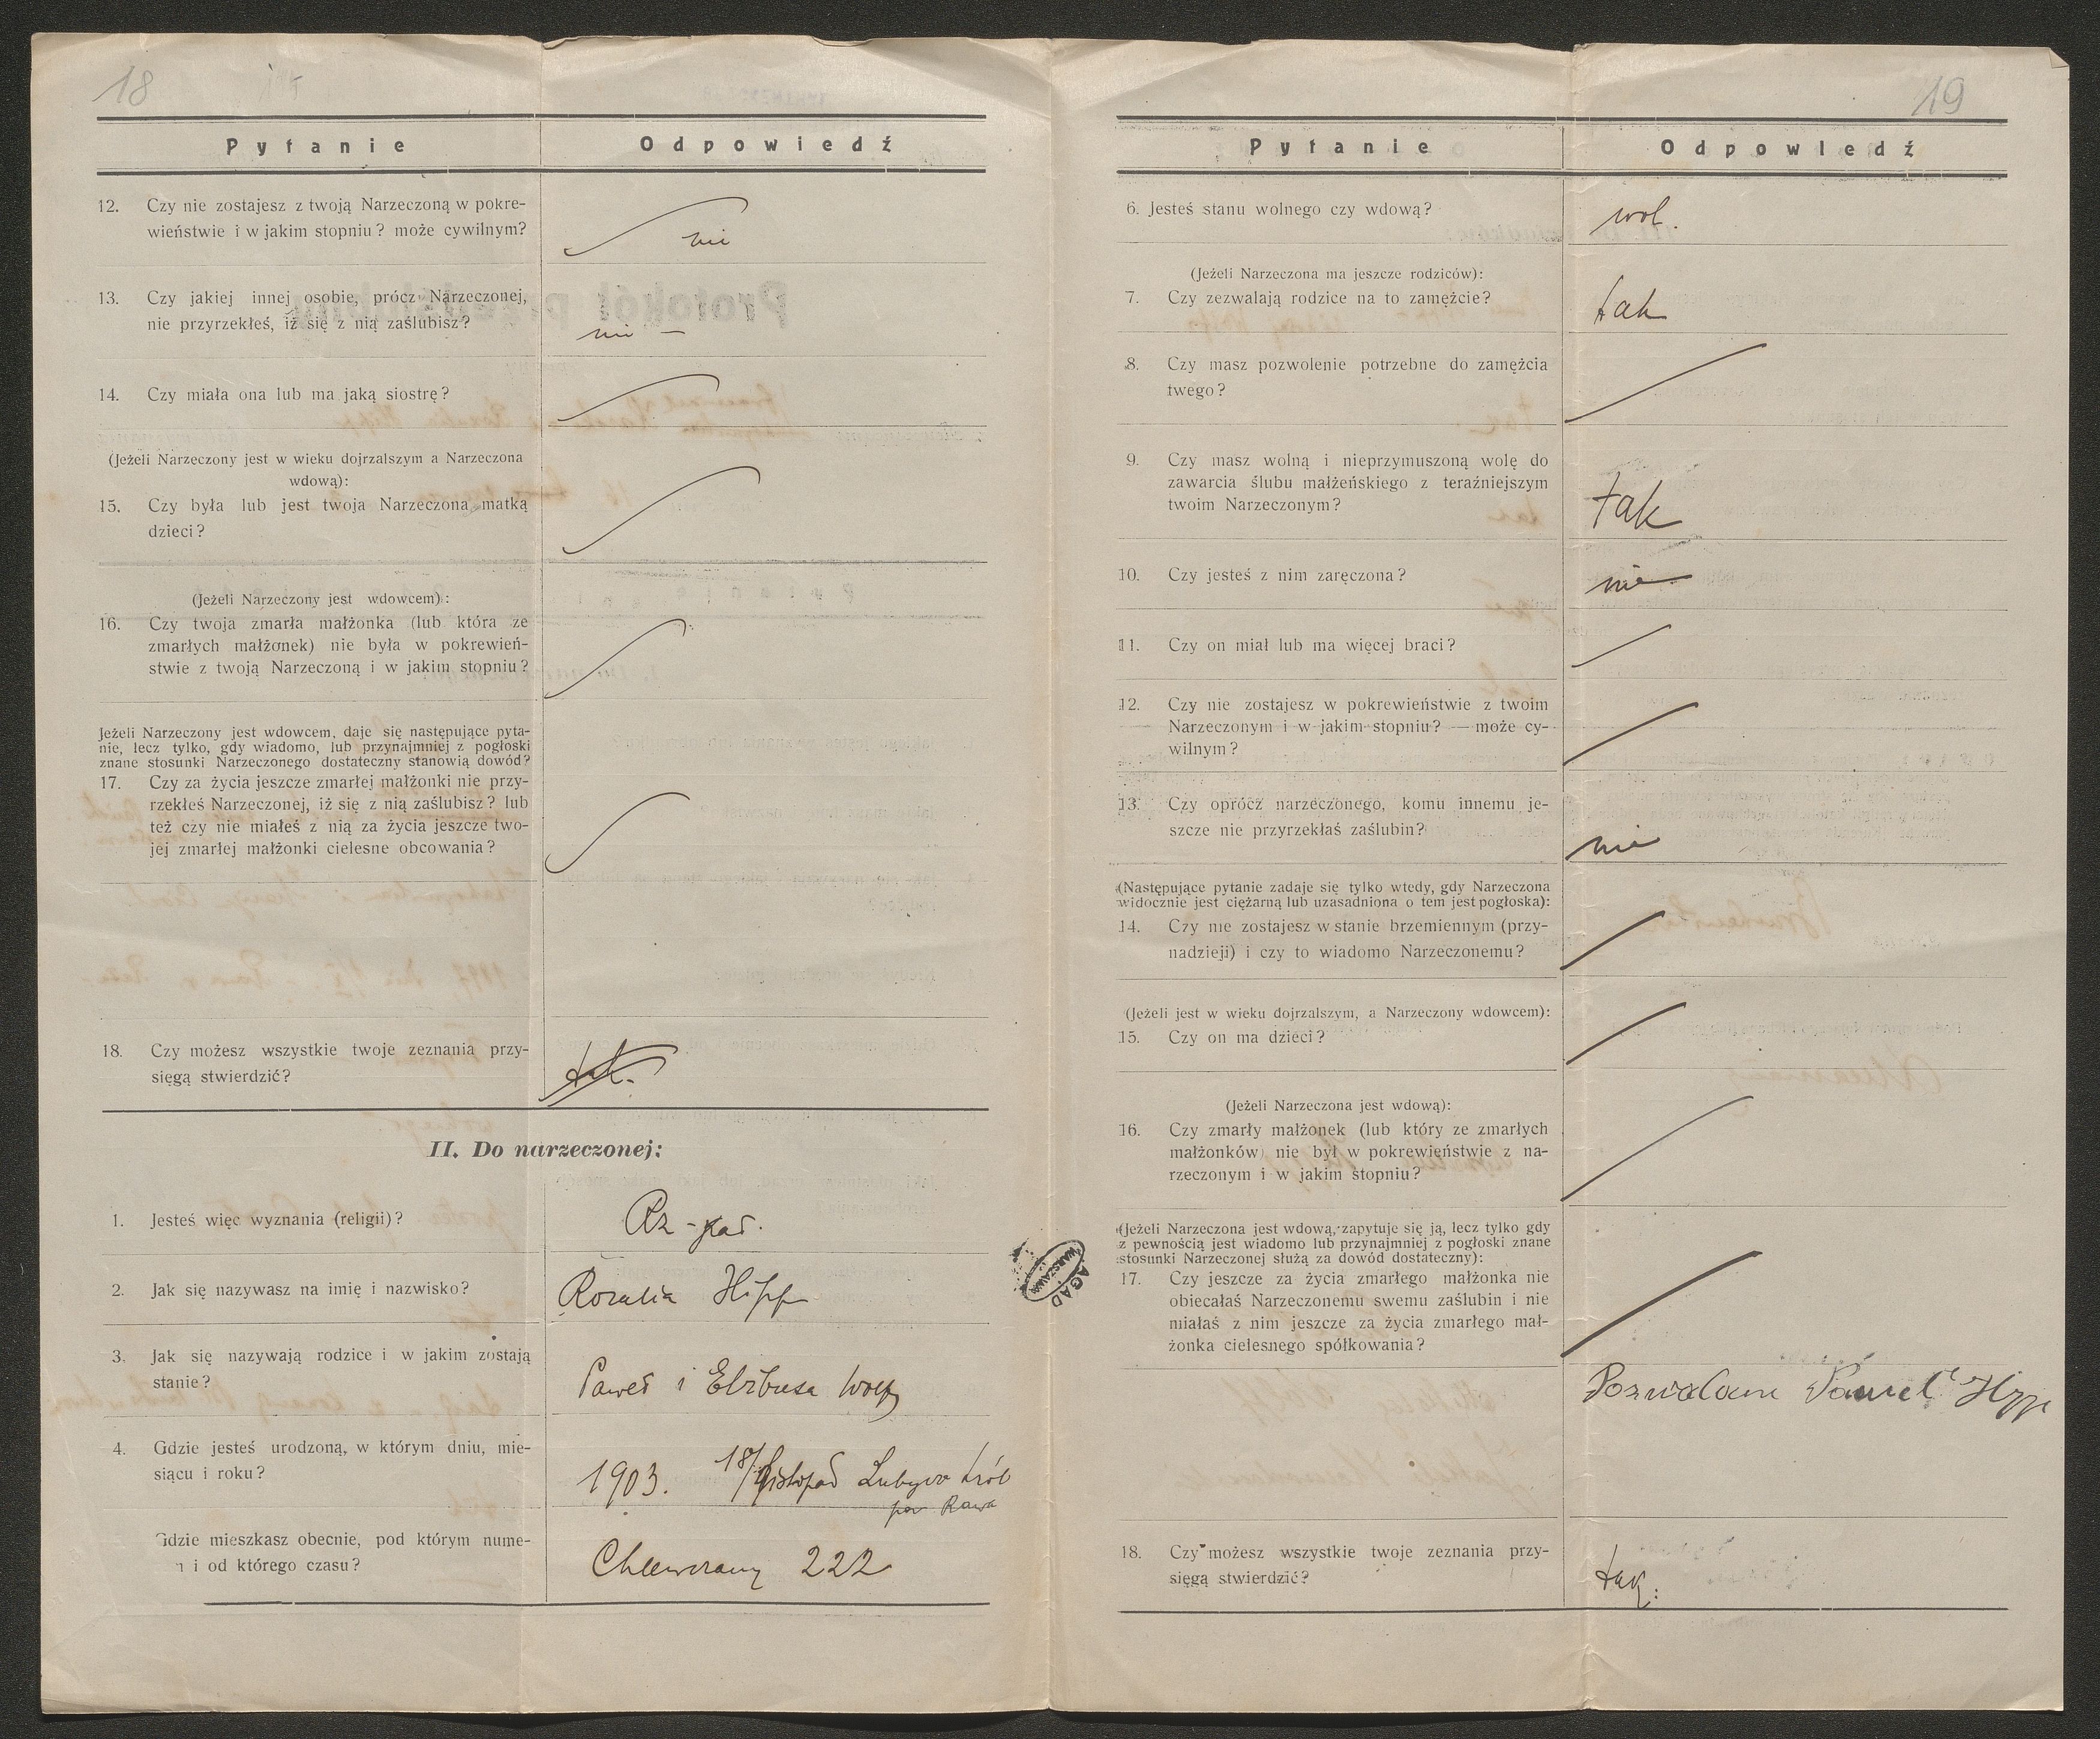 18
Pytanie
Odpowiedź
12. Czy nie zostajesz z twoją Narzeczoną w pokre-
wieństwie i w jakim stopniu? może cywilnym?
nie
13. Czy jakiej innej osobie, prócz Narzeczonej,
nie przyrzekłeś, iż się z nią zaślubisz?
nie —
14. Czy miała ona lub ma jaką siostrę?
(Jeżeli Narzeczony jest w wieku dojrzalszym a Narzeczona
wdową):
15. Czy była lub jest twoja Narzeczona matką
dzieci?
(Jeżeli Narzeczony jest wdowcem):
16. Czy twoja zmarła małżonka (lub która ze
zmarłych małżonek) nie była w pokrewień-
stwie z twoją Narzeczoną i w jakim stopniu?
Jeżeli Narzeczony jest wdowcem, daje się następujące pyta-
nie, lecz tylko, gdy wiadomo, lub przynajmniej z pogłoski
znane stosunki Narzeczonego dostateczny stanowią dowód?
17. Czy za życia jeszcze zmarłej małżonki nie przy-
rzekłeś Narzeczonej, iż się z nią zaślubisz? lub
też czy nie miałeś z nią za życia jeszcze two-
jej zmarłej małżonki cielesne obcowania?
18. Czy możesz wszystkie twoje zeznania przy-
sięgą stwierdzić?
tak.
II. Do narzeczonej:
1. Jesteś więc wyznania (religii)?
Rz-kat.
2. Jak się nazywasz na imię i nazwisko?
Rozalia Hipp
3. Jak się nazywają rodzice i w jakim zostają
stanie?
Paweł i Elżbieta Wolf
4. Gdzie jesteś urodzoną, w którym dniu, mie-
siącu i roku?
1903. 18/ listopad Lubycza król
pow Rawa
Gdzie mieszkasz obecnie, pod którym nume-
i od którego czasu?
222
AGAD
WARSZAWA
19
Pytanie
Odpowiedź
6. Jesteś stanu wolnego czy wdową?
wol.
(Jeżeli Narzeczona ma jeszcze rodziców):
7. Czy zezwalają rodzice na to zamężcie?
tak
8. Czy masz pozwolenie potrzebne do zamężcia
twego?
9. Czy masz wolną i nieprzymuszoną wolę do
zawarcia ślubu małżeńskiego z teraźniejszym
twoim Narzeczonym?
tak
10. Czy jesteś z nim zaręczona?
nie
11. Czy on miał lub ma więcej braci?
12. Czy nie zostajesz w pokrewieństwie z twoim
Narzeczonym i w jakim stopniu? — może cy-
wilnym?
13. Czy oprócz narzeczonego, komu innemu je-
szcze nie przyrzekłaś zaślubin?
nie
(Następujące pytanie zadaje się tylko wtedy, gdy Narzeczona
widocznie jest ciężarną lub uzasadniona o tem jest pogłoska):
14. Czy nie zostajesz w stanie brzemiennym (przy-
nadzieji) i czy to wiadomo Narzeczonemu?
(Jeżeli jest w wieku dojrzalszym, a Narzeczony wdowcem):
15. Czy on ma dzieci?
(Jeżeli Narzeczona jest wdową):
16. Czy zmarły małżonek (lub który ze zmarłych
małżonków) nie był w pokrewieństwie z na-
rzeczonym i w jakim stopniu?
(Jeżeli Narzeczona jest wdową, zapytuje się ją, lecz tylko gdy
z pewnością jest wiadomo lub przynajmniej z pogłoski znane
stosunki Narzeczonej służą za dowód dostateczny):
17. Czy jeszcze za życia zmarłego małżonka nie
obiecałaś Narzeczonemu swemu zaślubin i nie
miałaś z nim jeszcze za życia zmarłego mał-
żonka cielesnego spółkowania?
Pozwalam Paweł Hipp
18. Czy możesz wszystkie twoje zeznania przy-
sięgą stwierdzić?
tak.